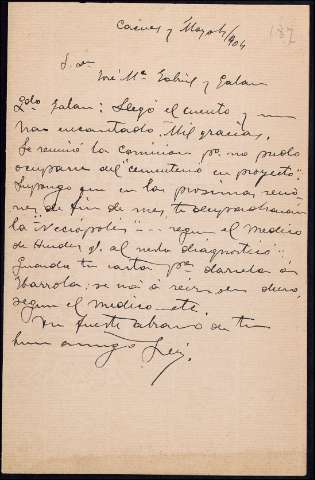 Cáceres y Mayo 4/904
187
S. Dn
José Mª Gabriel y Galan
Qdo Galan: Llegó el cuento y me
has encantado. Mil gracias.
Se reunió la comision pª no pudo
ocuparse del "cementerio en proyecto".
Supongo que en las proximas reunio
nes de fin de mes, te
la "Necrópolis"... segun el Medico
de al diagnóstico.
Guarda tu carta pª darsela á
Ibarrola: se vá á reir, sin duda,
segun el medico etc.
Un fuerte abrazo de tu
buen amigo